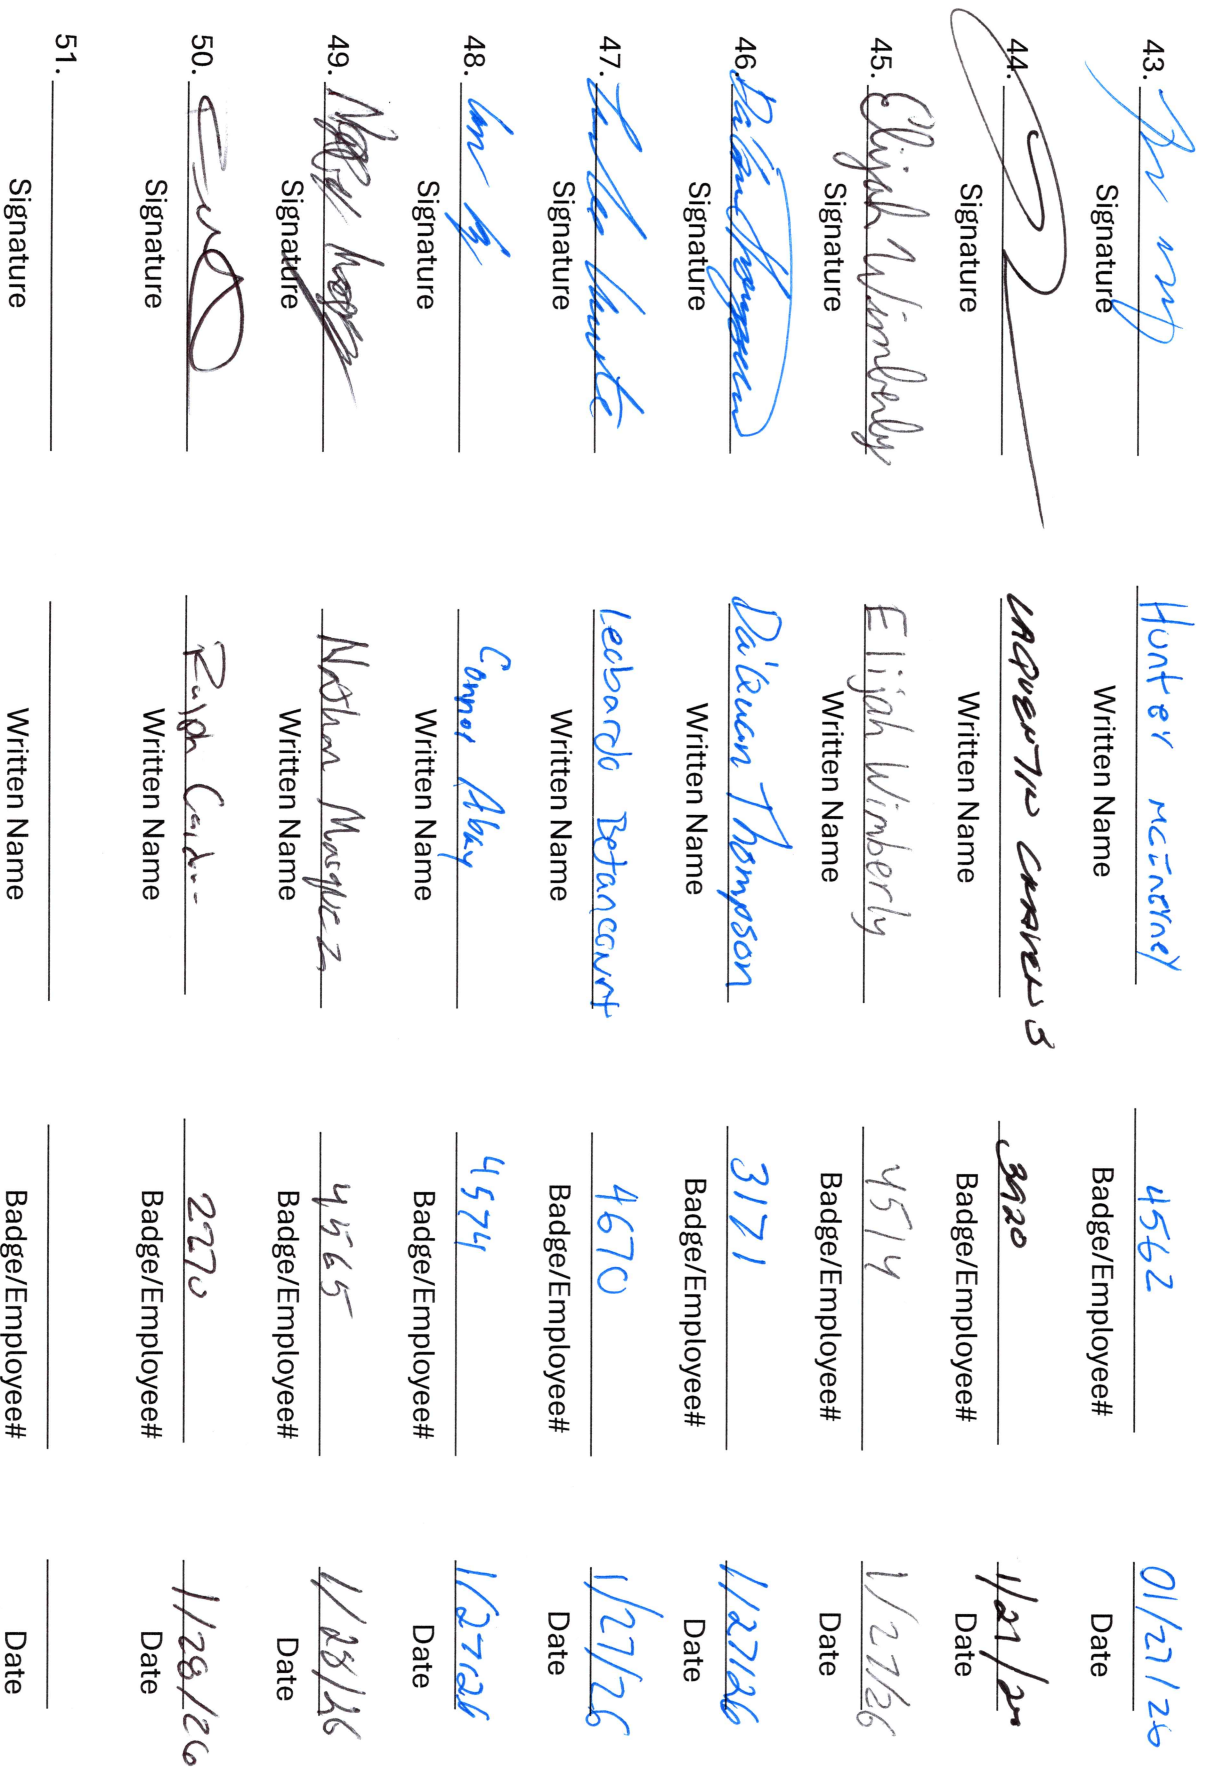 43. Hunter McInerney 4562 01/27/26
Signature Written Name Badge/Employee# Date
44. 3920
Signature Written Name Badge/Employee# Date
45. Elijah Wimberly Elijah Wimberly 4514 1/27/26
Signature Written Name Badge/Employee# Date
46. Da'Quan Thompson 3171 1/27/26
Signature Written Name Badge/Employee# Date
47. Leobardo Betancourt 4670 1/27/26
Signature Written Name Badge/Employee# Date
48. Connor Abay 4574 1/27/26
Signature Written Name Badge/Employee# Date
49. Nathan Marquez 4565 1/28/26
Signature Written Name Badge/Employee# Date
50. Ralph 2270 1/28/26
Signature Written Name Badge/Employee# Date
51.
Signature Written Name Badge/Employee# Date